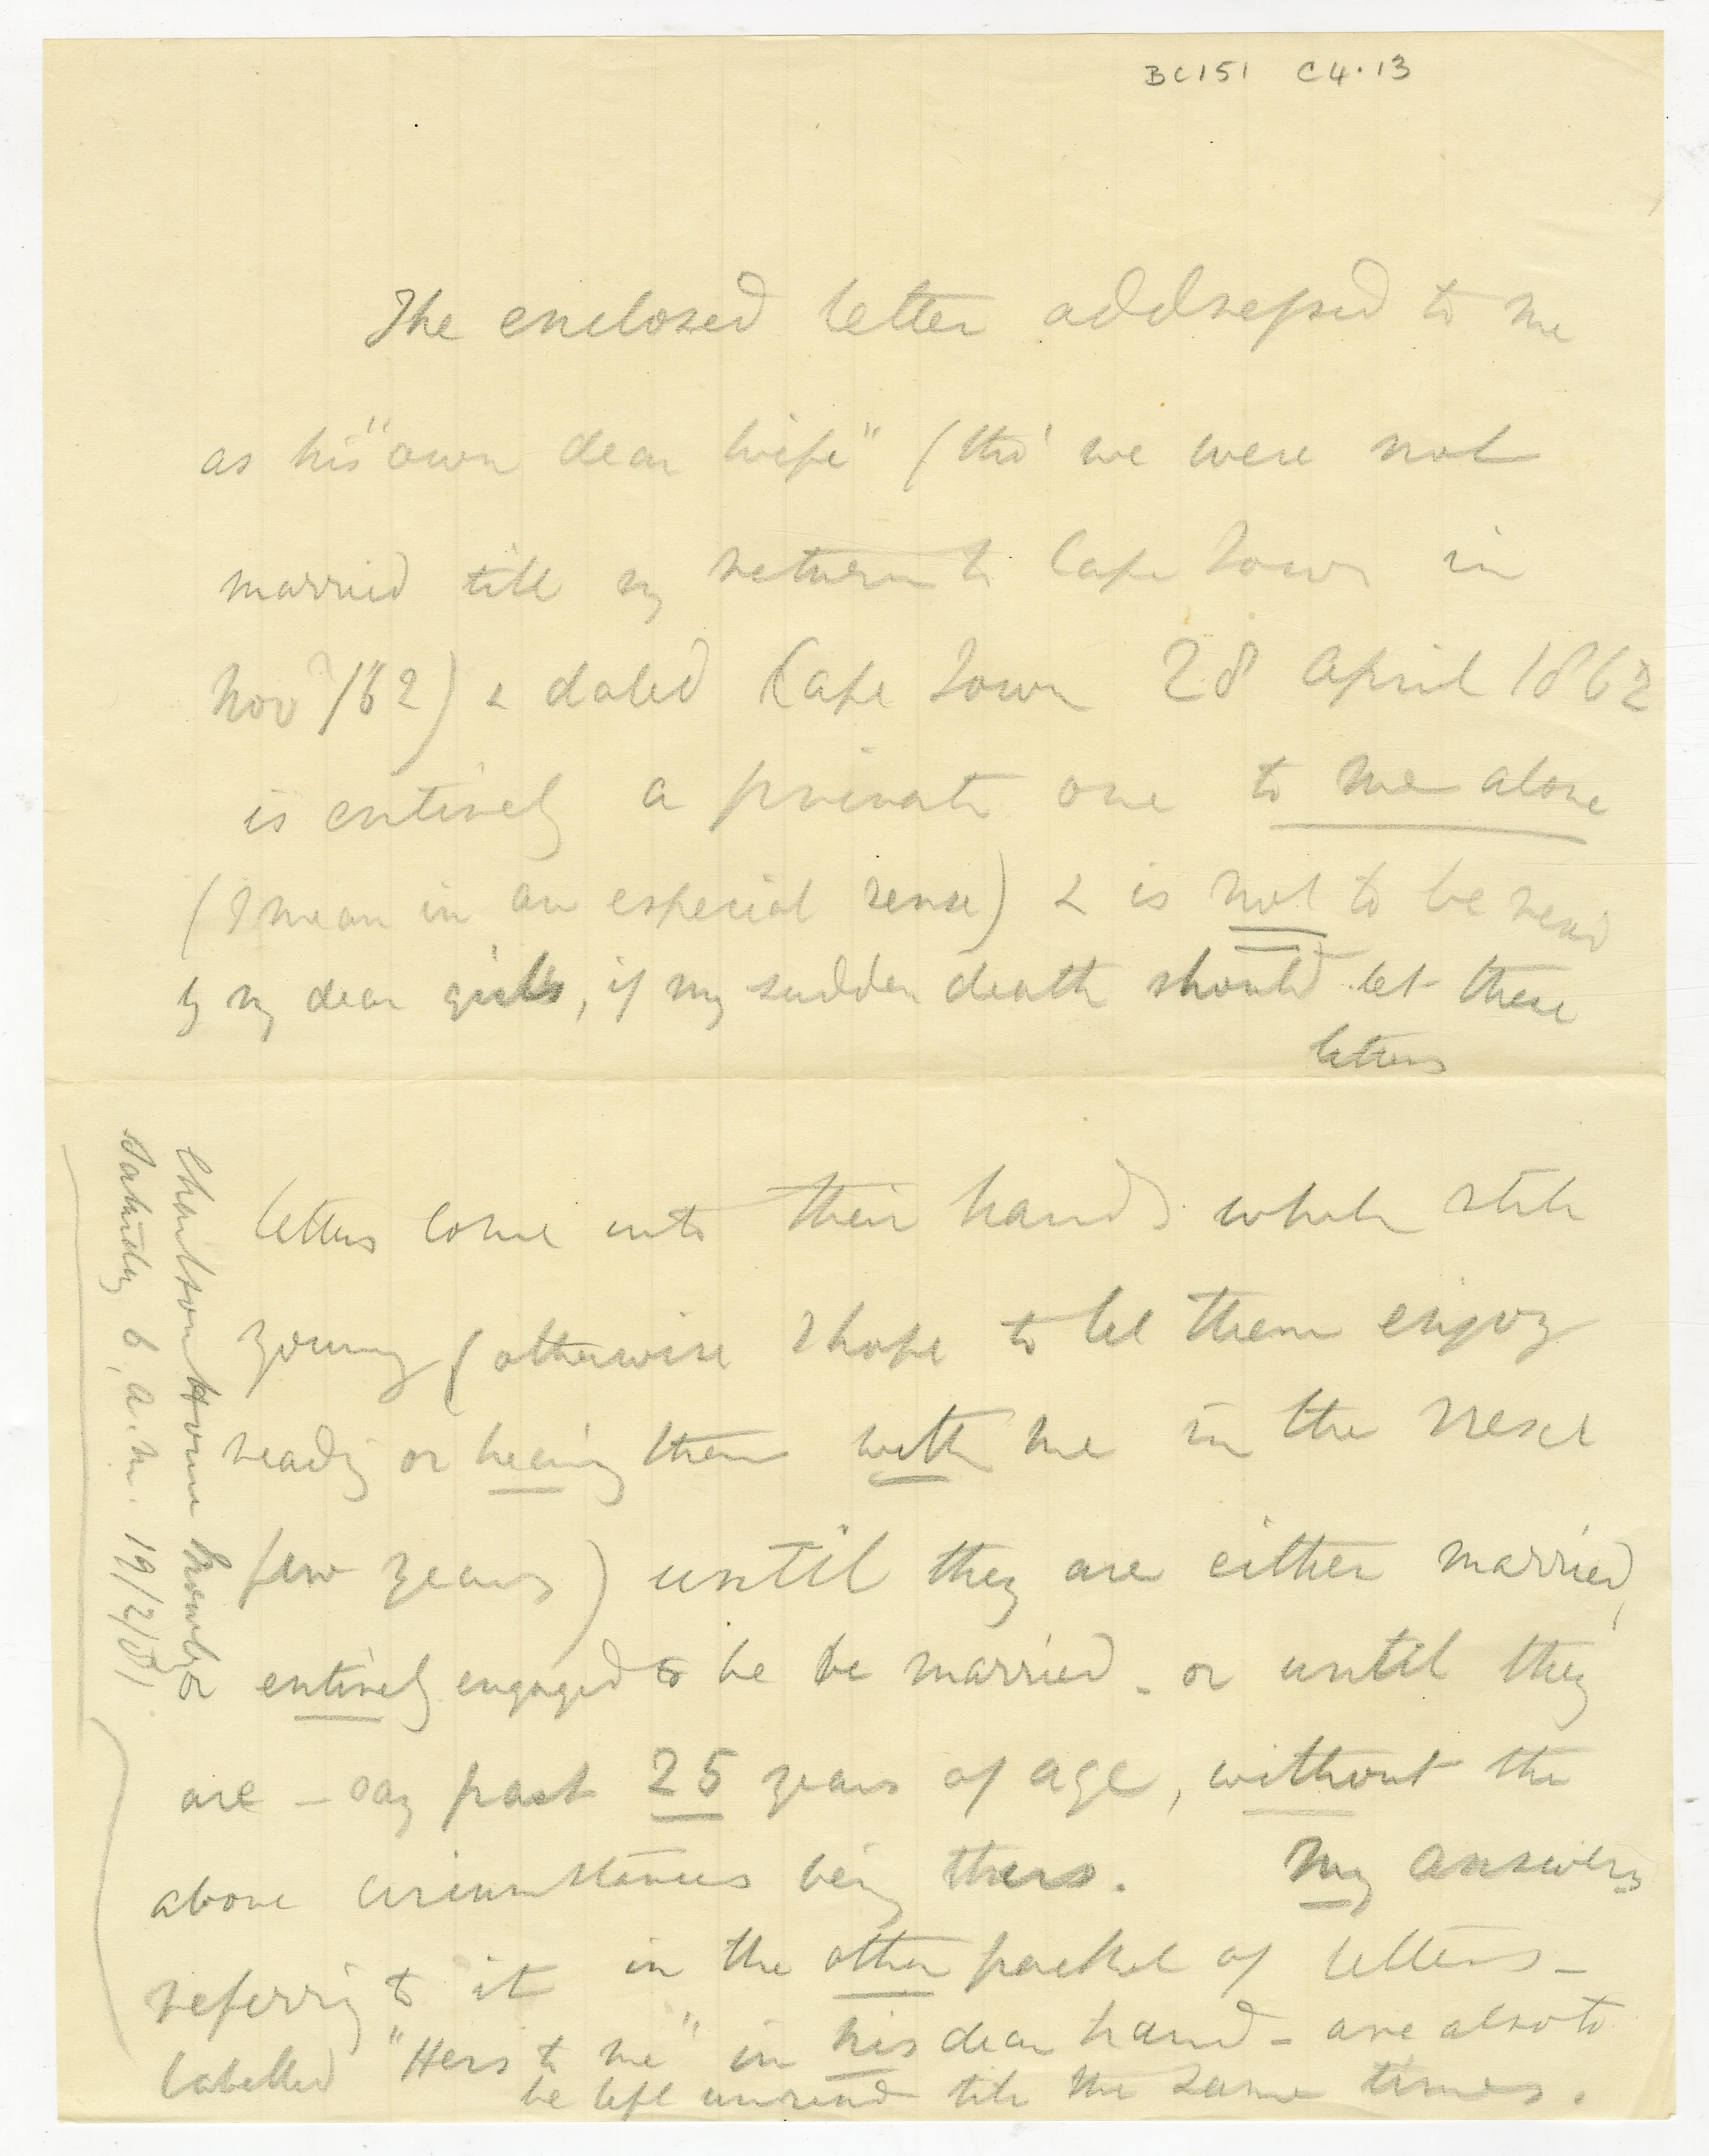 BC151 C4.13
The enclosed letter addressed to me
as his "own dear wife" (tho' we were not
married till my return to Cape Town in
Nov /62) & dated Cape Town 28 April 1862
is entirely a private one to me alone
(I mean in an especial sense) & is not to be read
by my dear girls, if my sudden death should let these
letters
letters come into their hands while still
young (otherwise I hope to let them enjoy
reading or hearing them with me in the next
few years) until they are either married,
or entirely engaged to be be married - or until they
are - say past 25 years of age, without the
above circumstances being theirs. My answers
referring to it in the other packet of letters -
labelled "Hers to me" in his dear hand - are also to
be left unread till the same times.
Charlton House
Saturday 6, a.m. 19/2/81